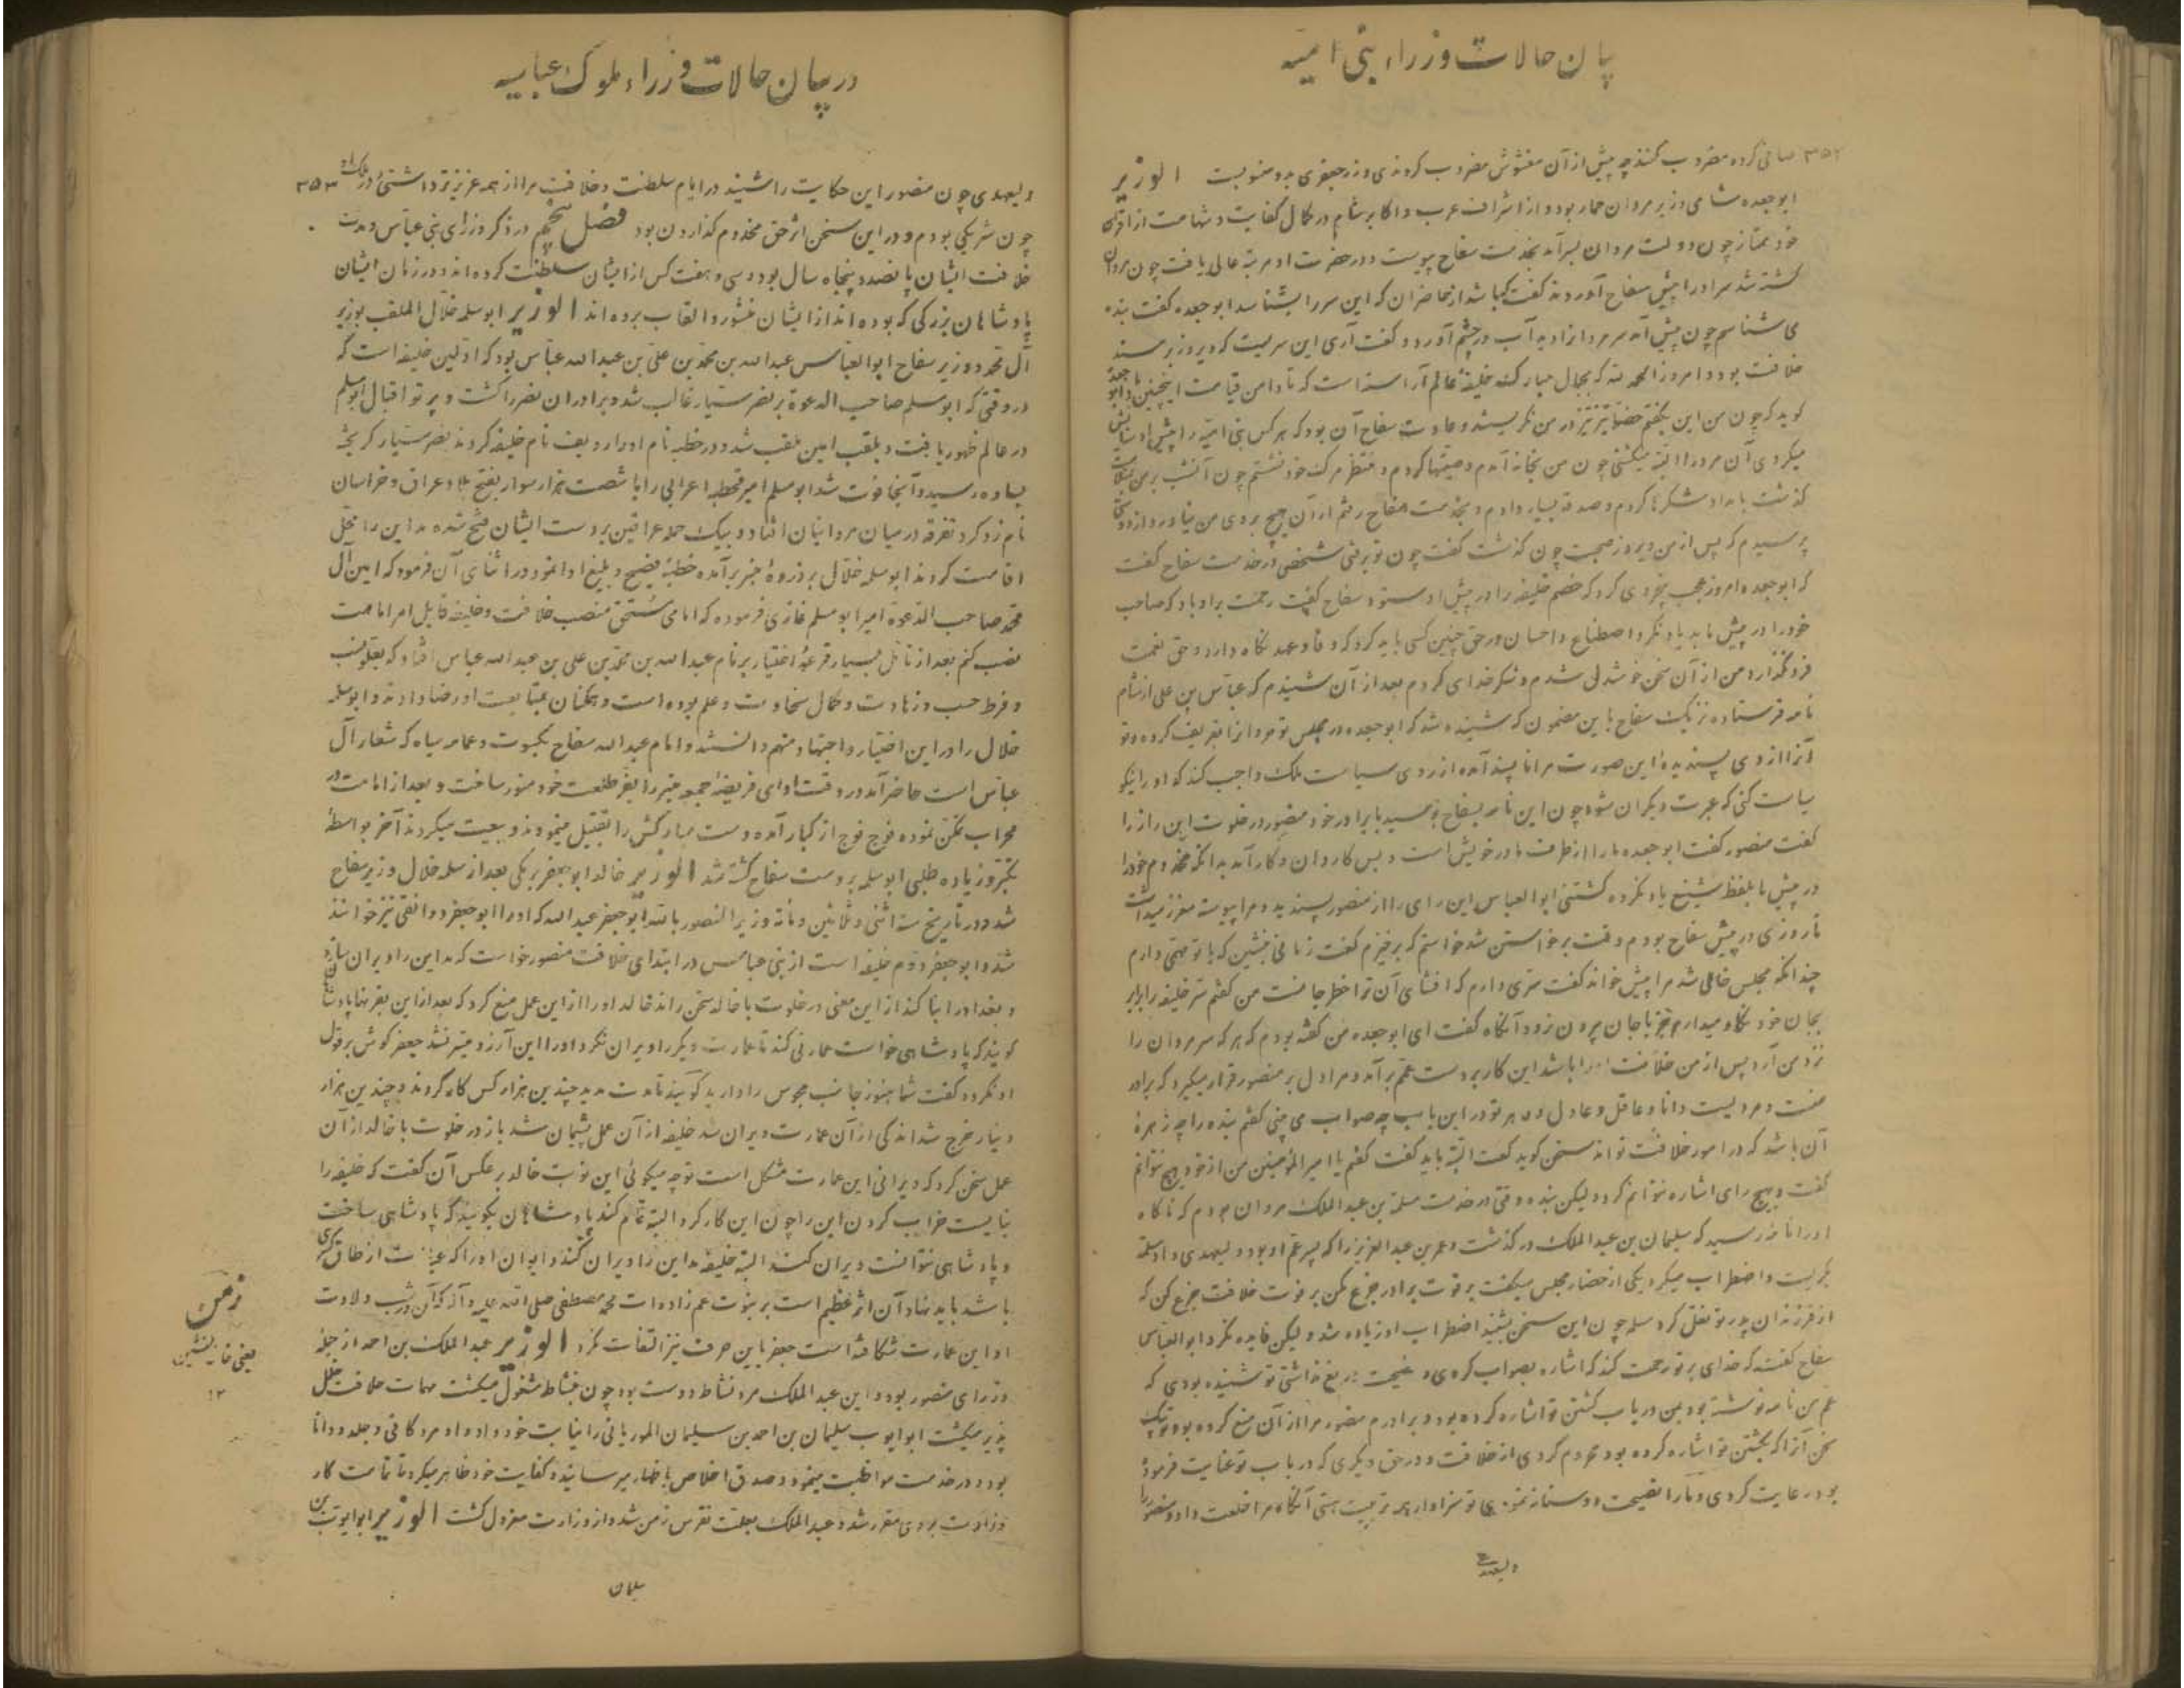 بیان حالات وزراء بنی امیه
۳۵۲ صافی کرده مضروب کنند چه پیش از آن مغشوش مضروب کردندی و زر جعفری بدو منسوبست الوزیر
ابوجعده شامی وزیر مروان حمار بود و از اشراف عرب و اکابر شام در کمال کفایت و شهامت از اقران
خود ممتاز چون دولت مروان بسر آمد بخدمت سفاح پیوست و در حضرت او مرتبه عالی یافت چون مروان
کشته شد سر او را پیش سفاح آوردند گفت کیا شد از حاضران که این سر را بشناسد ابوجعده گفت بنده
می شناسم چون پیش آمد سر مرد از ادبه آب در چشم آورد و گفت آری این سریست که دیروز بر مسند
خلافت بود و امروز الحمد لله که بجمال مبارک خلیفهٔ عالم آراسته است که تا دامن قیامت اینچنین باد ابوجعده
گوید که چون من این بگفتم حضار تیز تیز در من نگریستند و عادت سفاح آن بود که هر کس بنی امیه را پیش او ستایش
میکردی آن مرد را البته میکشتی چون من بخانه آمدم وصیتها کردم و منتظر مرگ خود نشستم چون آنشب بر من بسلامت
گذشت بامداد شکرها کردم و صدقه بسیار دادم و بخدمت سفاح رفتم از آن هیچ بروی من نیاورد از دوستان
پرسیدم که پس از من دیروز صحبت چون گذشت گفت چون تو برفتی شخصی در خدمت سفاح گفت
که ابوجعده امروز عجب بیخردی کرد که خصم خلیفه را در پیش او ستود سفاح گفت رحمت بر او باد که صاحب
خود را در پیش ما بد یاد نکرد و اصطناع و احسان در حق چنین کسی باید کرد که وفا و عهد نگاه دارد و حق نعمت
فرو نگذارد من از آن سخن خوشدل شدم و شکر خدای کردم بعد از آن شنیدم که عباس بن علی از شام
نامه فرستاده نزدیک سفاح باین مضمون که شنیده شد که ابوجعده در مجلس تو مروان را تعریف کرده و تو
آنرا از وی پسندیده این صورت مرا نا پسند آمده از روی سیاست ملک واجب کند که او را نیکو
سیاست کنی که عبرت دیگران شود چون این نامه بسفاح رسید با برادر خود منصور در خلوت این راز را
گفت منصور گفت ابوجعده ما را از طرف مادر خویش است و بس کاردان و کارآمد بدانکه مخدوم خود را
در پیش ما بلفظ شنیع یاد نکرده کشتنی ابوالعباس این رای را از منصور پسندید و مرا پیوسته معزز میداشت
تا روزی در پیش سفاح بودم وقت برخواستن شد خواستم که برخیزم گفت زمانی بنشین که با تو مهمی دارم
چندانکه مجلس خالی شد مرا پیش خواند گفت سری دارم که افشای آن تو را خطر جانست من گفتم سر خلیفه را برابر
بجان خود نگاه میدارم و جز با جان بیرون نرود آنگاه گفت ای ابوجعده من گفته بودم که هر که سر مروان را
نزد من آرد پس از من خلافت او را باشد این کار بر دست عمم برآمد و مرا دل بر منصور قرار میگیرد که برادر
منست و مردیست دانا و عاقل و عادل و ماهر تو در این باب چه صواب می بینی گفتم بنده را چه زهرهٔ
آن باشد که در امور خلافت تواند سخن گوید گفت البته باید گفت گفتم یا امیر المؤمنین من از خود هیچ نتوانم
گفت و هیچ رای اشاره نتوانم کرد ولیکن بنده وقتی در خدمت مسلمة بن عبدالملک مروان بودم که ناگاه
او را نامه رسید که سلیمان بن عبدالملک درگذشت و عمر بن عبدالعزیز را که پسر عم او بود ولیعهدی داد مسلمه
بگریست و اضطراب میکرد یکی از حضار مجلس میگفت بر فوت برادر جزع مکن بر فوت خلافت جزع کن که
از فرزندان پدر تو نقل کرد مسلمه چون این سخن بشنید اضطراب او زیاده شد ولیکن فایده نکرد ابوالعباس
سفاح گفت که خدای بر تو رحمت کند که اشاره بصواب کردی و نصیحت دریغ نداشتی تو شنیده بودی که
عم من نامه نوشته بود بمن در باب کشتن تو اشاره کرده بود و برادرم منصور مرا از آن منع کرده بود تو نیک
کن آنرا که بکشتن تو اشاره کرده بود محروم کردی از خلافت و در حق دیگری که در باب تو عنایت فرموده
بود رعایت کردی و ما را نصیحت دوستانه نمودی تو سزاوار همه تربیت هستی آنگاه مرا خلعت داد و منصور را
ولیعهدی
در بیان حالات وزراء ملوک عباسیه
ولیعهدی چون منصور این حکایت را شنید در ایام سلطنت و خلافت مرا از همه عزیزتر داشتی و در ملک او ۳۵۳
چون شریکی بودم و در این سخن اثر حق مخدوم گذاردن بود فصل پنجم در ذکر وزرای بنی عباس و مدت
خلافت ایشان پانصد و پنجاه سال بود و سی و هفت کس از ایشان سلطنت کرده اند و در زمان ایشان
پادشاهان بزرگی که بوده اند از ایشان منشور و القاب برده اند الوزیر ابوسلمه خلال الملقب بوزیر
آل محمد وزیر سفاح ابوالعباس عبدالله بن محمد بن علی بن عبدالله عباس بود که اولین خلیفه است که
در وقتی که ابومسلم صاحب الدعوة بر نصر سیار غالب شد و برادران نصر را کشت و پرتو اقبال ابومسلم
در عالم ظهور یافت و بلقب امین ملقب شد و در خطبه نام او را ردیف نام خلیفه کردند نصر سیار گریخته
بساوه رسید و آنجا فوت شد ابومسلم امیر قحطبه اعرابی را با شصت هزار سوار بفتح بلاد عراق و خراسان
نامزد کرد تفرقه در میان مروانیان افتاد و بیک حمله عراقین بر دست ایشان فتح شده مداین را محل
اقامت کردند ابوسلمه خلال بر ذروهٔ منبر برآمده خطبهٔ فصیح و بلیغ ادا نمود در اثنای آن فرمود که امین آل
محمد صاحب الدعوة امیر ابومسلم غازی فرموده که امامی مستحق منصب خلافت و خلیفه قابل امر امامت
نصب کنم بعد از تأمل بسیار قرعهٔ اختیار بر نام عبدالله بن محمد بن علی بن عبدالله عباس افتاد که بعلو نسب
و فرط حسب و زهادت و کمال سخاوت و علم بوده است و همگنان بمتابعت او رضا دادند و ابوسلمه
خلال را در این اختیار و اجتهاد متهم دانستند و امام عبدالله سفاح بکسوت و عمامه سیاه که شعار آل
عباس است حاضر آمد در وقت ادای فریضهٔ جمعه منبر را بفر طلعت خود منور ساخت و بعد از امامت در
محراب تمکن نموده فوج فوج از کبار آمده دست مبارکش را تقبیل مینمودند و بیعت میکردند آخر بواسطهٔ
تکبر و زیاده طلبی ابوسلمه بر دست سفاح کشته شد الوزیر خالد ابوجعفر برمکی بعد از سلمه خلال وزیر سفاح
شد و در تاریخ سنه اثنی و ثلاثین و مأئة وزیر المنصور بالله ابوجعفر عبدالله که او را ابوجعفر دوانقی نیز خوانند
شد و ابوجعفر دوم خلیفه است از بنی عباس در ابتدای خلافت منصور خواست که مداین را ویران سازد
و بغداد را بنا کند از این معنی در خلوت با خالد سخن راند خالد او را از این عمل منع کرد که بعد از این بقرنها پادشاهان
گویند که پادشاهی خواست عمارتی کند تا عمارت دیگر را ویران نکرد او را این آرزو میسر نشد جعفر گوش بر قول
او نکرد و گفت شما هنوز جانب مجوس را دارید گویند تا مدت مدید چندین هزار کس کار کردند و چندین هزار
دینار خرج شد اندکی از آن عمارت ویران شد خلیفه از آن عمل پشیمان شد باز در خلوت با خالد از آن
عمل سخن کرد که ویرانی این عمارت مشکل است تو چه میگوئی این نوبت خالد بر عکس آن گفت که خلیفه را
نبایست خراب کردن این را چون این کار کرد البته تمام کند پادشاهان بگویند که پادشاهی ساخت
و پادشاهی نتوانست ویران کند البته خلیفه مداین را ویران کند و ایوان او را که عبارت از طاق کسری
باشد باید نهاد آن اثر عظیم است بر نبوت عم زاده ات محمد مصطفی صلی الله علیه و آله که آن در شب ولادت
او این عمارت شکافته است جعفر باین حرف نیز التفات نکرد الوزیر عبدالملک بن احمد از جمله
وزرای منصور بود و این عبدالملک مرد نشاط دوست بود چون بنشاط مشغول میگشت مهمات خلافت خلل
پذیر میگشت ابوایوب سلیمان بن احمد بن سلیمان الموریانی را نیابت خود داد و او مرد کافی و جلد و دانا
بود و در خدمت مواظبت مینمود و صدق اخلاص باظهار میرسانید و کفایت خود ظاهر میکرد تا تمامت کار
وزارت بر وی مقرر شد و عبدالملک بعلت نقرس زمن شد و از وزارت معزول گشت الوزیر ابوایوب بن
سلیمان
زمن
یعنی خانه نشین
۱۲